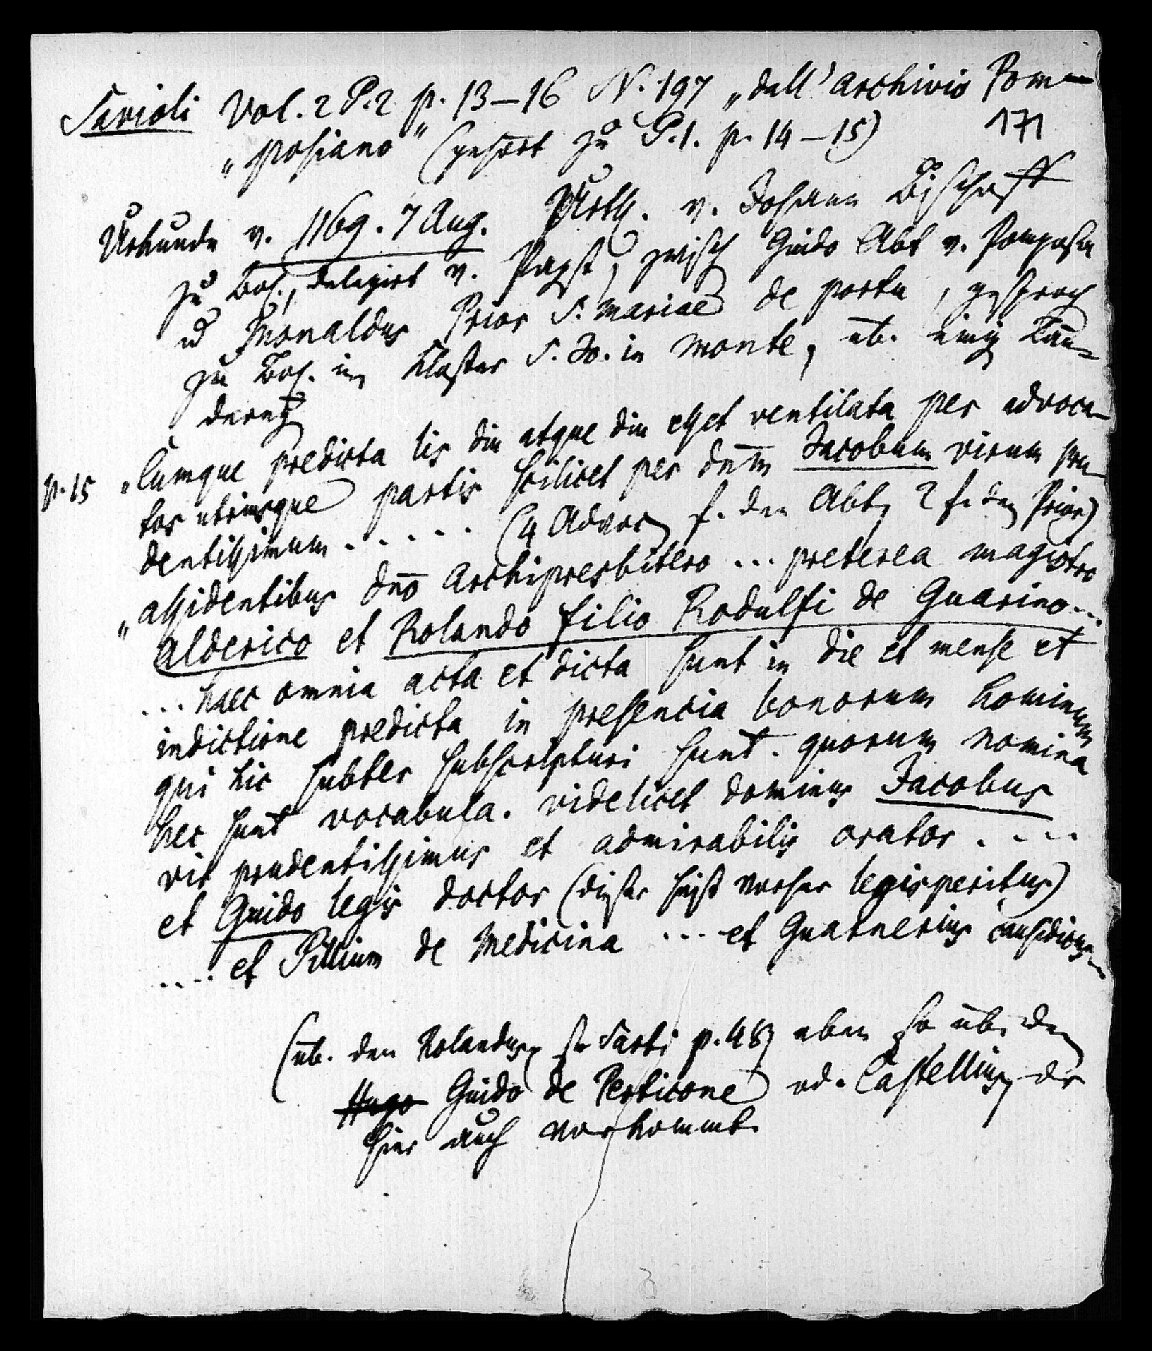 Savioli Vol. 2 P. 2 p. 13–16 N. 197 „dall' archivio Pom-
„posiano" (gehört zu P. 1. p. 14–15) 171
Urkunde v. 1169. 7 Aug. Urth. v. Johann Bischoff
zu Bol., delegirt v. Papst, zwisch Guido Abt v. Pomposa
u Monaldus Prior S. Mariae de porta, gesproch
zu Bol. im Kloster S. Jo. in monte, üb. einig Län-
dereÿ
p. 15 „Cumque predicta lis diu atque diu esset ventilata per advoca-
tos utriusque partis scilicet per dnm Jacobum virum pru-
dentissimum . . . . . (4 Advoc f. den Abt, 2 f. den Prior)
„assidentibus dno Archipresbitero ... preterea magistro
Alderico et Rolando filio Rodulfi de Guarino ...
... haec omnia acta et dicta sunt in die et mense et
indictione predicta in presencia bonorum hominum
qui hic subter subscripturi sunt. quorum nomina
hec sunt vocabula. videlicet dominus Jacobus
vir prudentissimus et admirabilis orator . . . .
et Guido legis doctor (dieser heist vorher legisperitus)
. . . . et Pillium de Medicina ... et Guarnerius causidicus
(üb. den Rolandus s. Sarti p. 48, eben so üb. den
Hugo Guido de Perticone od. Castellius, der
hier auch vorkommt.